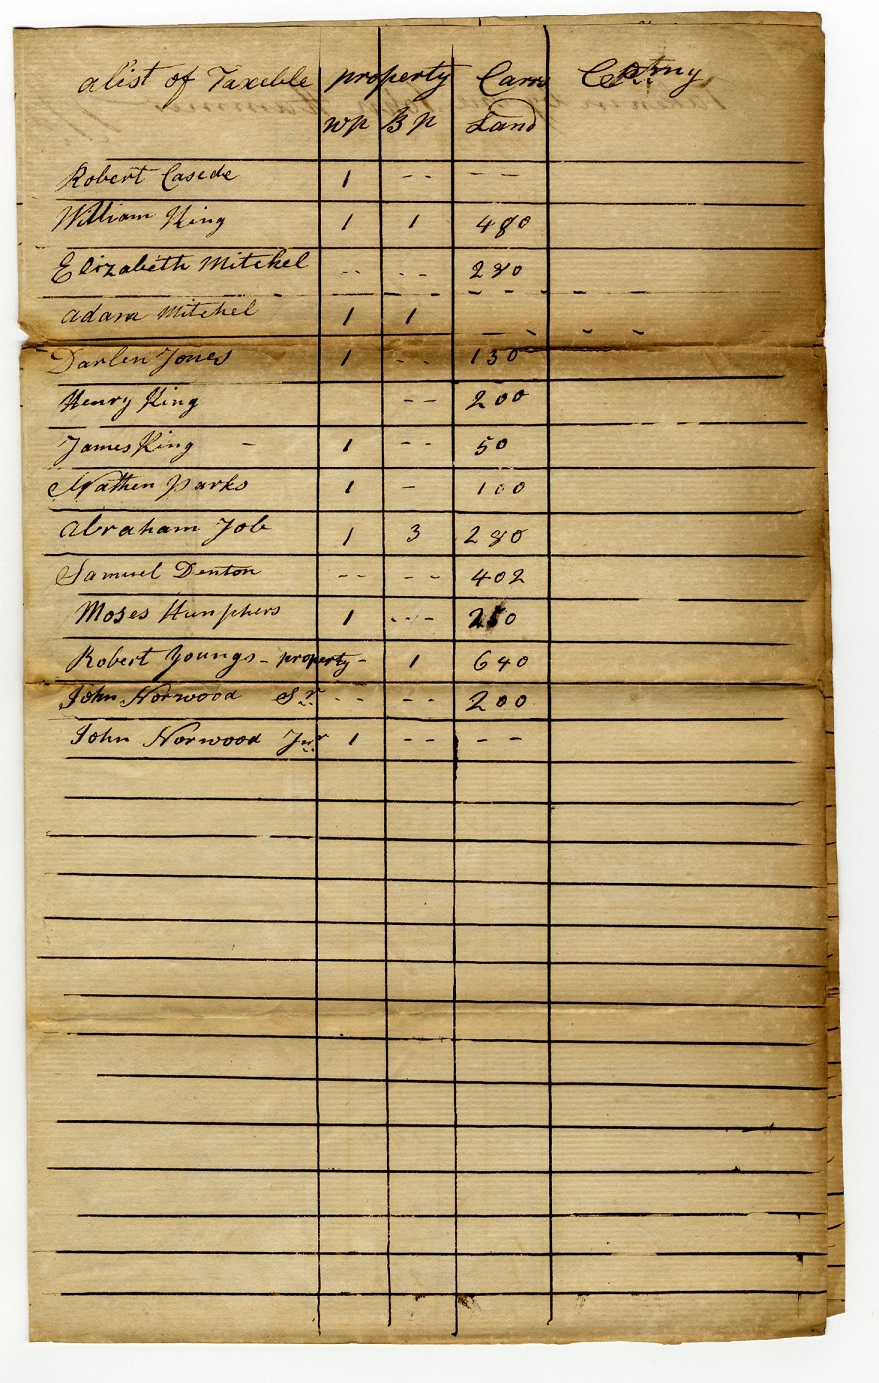 a list of Taxeble property Carrs Compny
wp B p Land
Robert Casede 1 -- --
William King 1 1 480
Elizabeth Mitchel -- -- 280
adam Mitchel 1 1
Darlen Jones 1 -- 130
Henry King -- 200
James King - 1 -- 50
Nathen Parks 1 - 100
Abraham Job 1 3 280
Samuel Denton -- -- 402
Moses Humphers 1 --- 2 0
Robert Youngs - property - 1 640
John Norwood Sr -- -- 200
John Norwood Jur 1 -- --